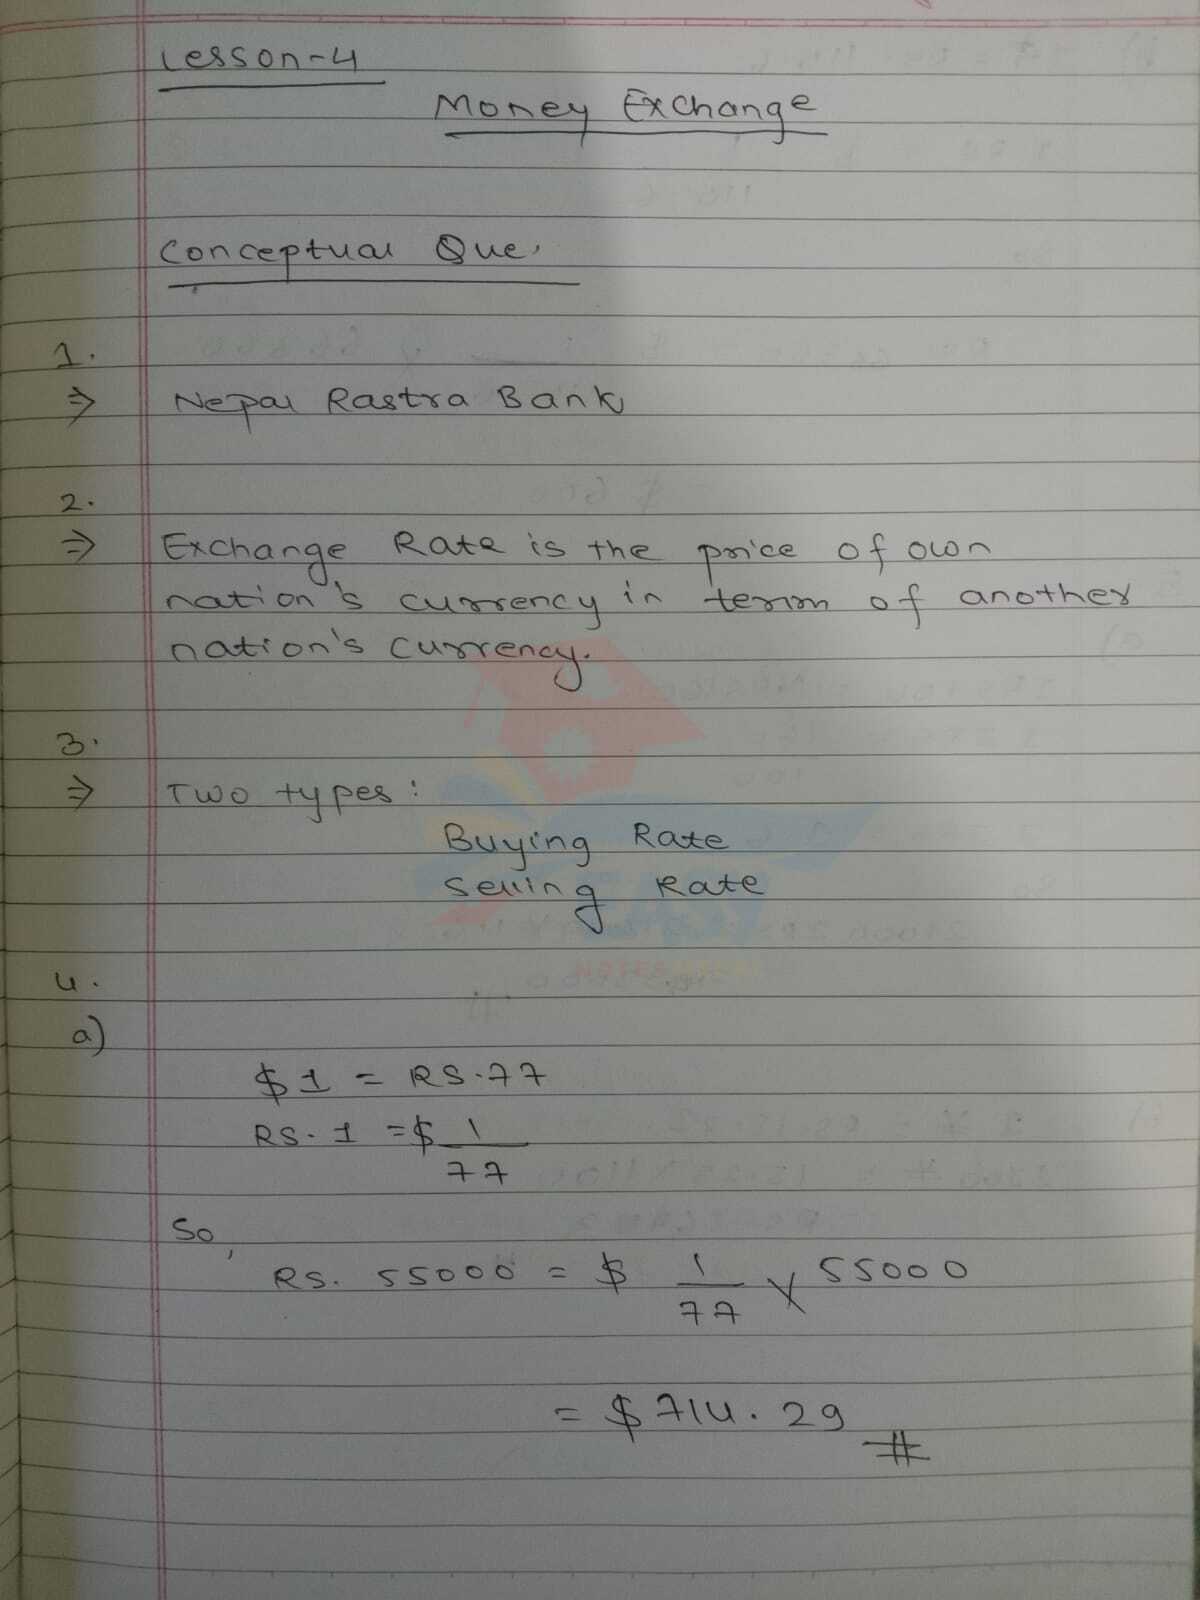 Lesson-4
Money Exchange
Conceptual Que.
1.
⇒ Nepal Rastra Bank
2.
⇒ Exchange Rate is the price of own
nation's currency in term of another
nation's currency.
3.
⇒ Two types:
Buying Rate
Selling Rate
4.
a)
$1 = RS.77
RS. 1 = $ 1/77
So,
RS. 55000 = $ 1/77 × 55000
= $714.29 #